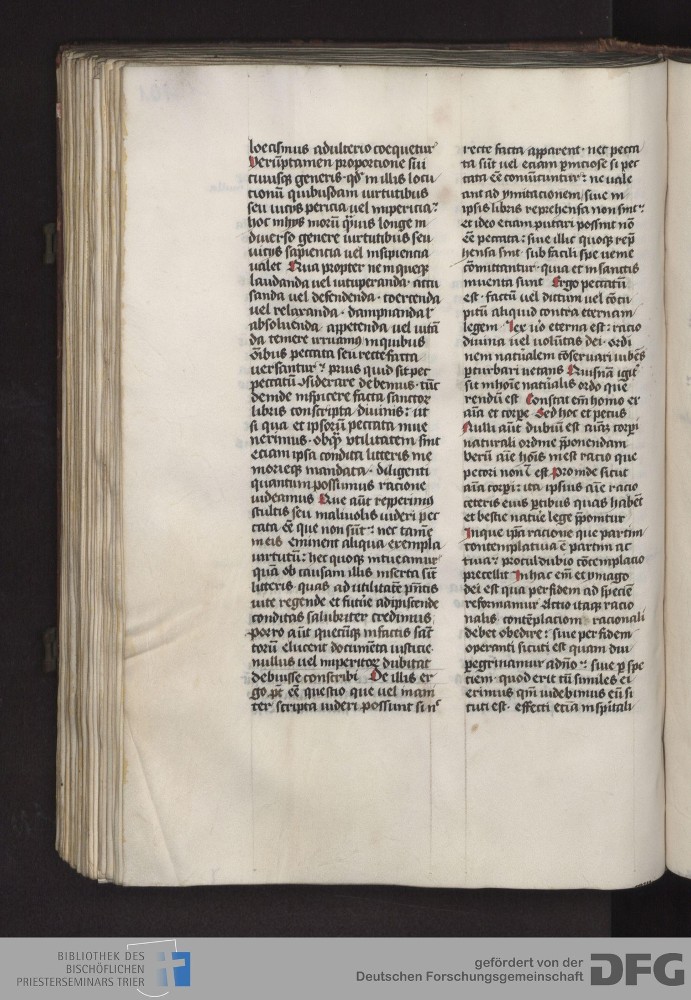 loecismus adulterio coequetur
Verũptamen proportione sũi
cuiusq̃ generis · qđ in illis locu
tionũ quibusdam uirtutibus
seu uicijs pericia uel impericia ⁊
hoc in hijs morũ q̃uis longe in
diuerso genere uirtutibus seu
uicijs sapiencia uel insipiencia
ualet Qua propter ne inqueq̃
laudanda uel uituperanda · accu
sanda uel defendenda · coercenda
uel relaxanda · dampnanda l'
absoluenda · appetenda uel uitã
da temere irruamus in quibus
õibus peccata seu recte facta
uersantur ⁊ prius quid sit pec
peccatũ ↄsiderare debemus · tũc
deinde inspicere facta sanctoꝝ
libris conscripta diuinis: ut
si qua et ipsorũ peccata inue
nerimus · obq̃ utilitatem sint
eciam ipsa condita litteris me
morieq̃ mandata · diligenti
quantum possumus ratione
uideamus Que aũt repperimꝰ
stultis seu maliuolis uideri pec
cata eẽ que non sũt: nec tamẽ
in eis eminent aliqua exempla
uirtutũ: hec quoq̃ intueamur
quã ob causam illis inserta sũt
litteris · quas ad utilitatẽ p̃ntis
uite regende et futũe adipiscende
conditas salubriter credimus
Porro aũt quecũq̃ in factis sãc
torũ elucent documẽta iusticie
nullus uel imperitoꝝ dubitat
debuisse conscribi De illis er
go põt eẽ questio que uel inani
ter scripta uideri possunt si nec
recte facta apparent · nec pecca
ta sũt uel eciam p̃niciose si pec
cata eẽ conuĩcuntur: ne uale
ant ad ymitacionem siue in
ipsis libris reprehensa non sint ⁊
et ideo eciam putari possint nõ
eẽ peccata: siue illic quoq̃ rep̃
hensa sint · sub facili spe uenie
cõmittantur · quia et in sanctis
inuenta sunt Ergo peccatũ
est · factũ uel dictum uel cõcu
pitũ aliquid contra eternam
legem · Lex u̾o eterna est: racio
diuina uel uolũtas dei · ordi
nem natũalem cõseruari iubẽs
p̃turbari uetans Quisnã igit̾
sit in hoĩe natũalis ordo que
rendũ est Constat em̃ homo ex
aĩa et corpe Sed hoc et pecus
Nulli aũt dubiũ est aĩaꝫ corpi
naturali ordine p̃ponendam
Verũ aĩe hoĩs inest racio que
pecori non ĩest Proinde sicut
aĩa corpi: ita ipsius aĩe racio
ceteris eius p̃tibus quas habẽt
et bestie natũe lege p̃ponitur
Inque ip̃a racione que partim
contemplatiua ẽ partim ac
tiua: proculdubio cõtemplacio
precellit In hac em̃ et ymago
dei est qua per fidem ad speciẽ
reformamur Actio itaq̃ racio
nalis contẽplacioni racionali
debet obedire: siue per fidem
operanti sicuti est quam diu
pegrinamur a dño: siue p̃ spe
ciem · quod erit cũ similes ei
erimus qm̃ uidebimus eũ si
cuti est · effecti eciã in sp̃itali
BIBLIOTHEK DES
BISCHÖFLICHEN
PRIESTERSEMINARS TRIER
gefördert von der
Deutschen Forschungsgemeinschaft DFG